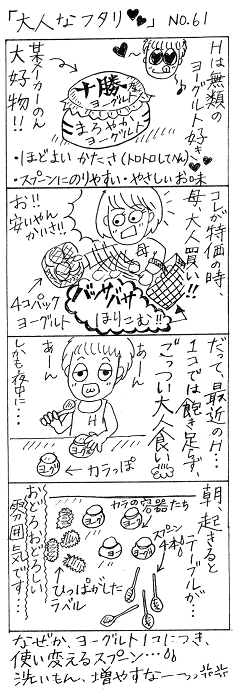 「大人なフタリ♥♥」 NO.61
Hは無類の
ヨーグルト好き
某メーカーのん
大好物!!
十勝
ヨーグルト
まろやか
ヨーグルト
・ほどよいかたさ(トロトロしてへん)
・スプーンにのりやすい・やさしいお味
コレが特価の時、
母、大人買い!!
お!!
安いやん
かいさ!!
母
4コパック
ヨーグルト
バッサバサ
ほりこむ!!
だって、最近のH…
1コでは飽き足らず、
ごっつい大人食い
あーん
あーん
H
ヨーグ
ヨーグ
カラっぽ
しかも夜中に…
朝、起きると
テーブルが…
カラの容器たち
スプーン
4本!!
ひっぱがした
ラベル
おどろおどろしい
雰囲気です…
なぜか、ヨーグルト1コにつき、
使い変えるスプーン…
洗いもん、増やすなーっっ